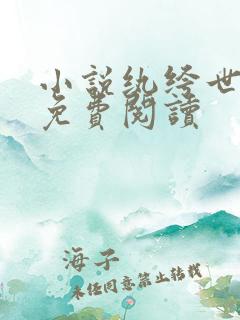 小說紈絝世
免費閱讀
海子
未經同意禁止轉載